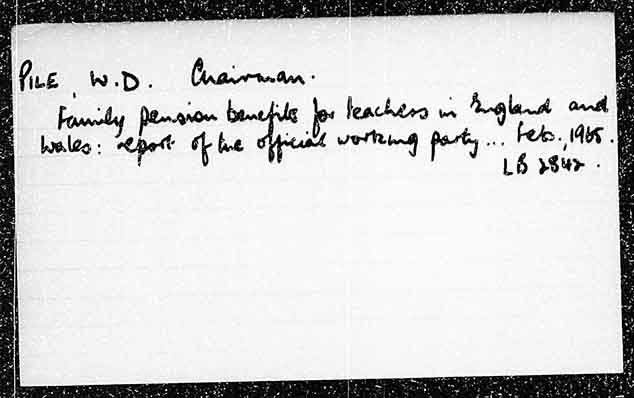 PILE, W.D. Chairman.
Family pension benefits for teachers in England and
Wales: report of the official working party... Feb., 1965.
LB 2842.